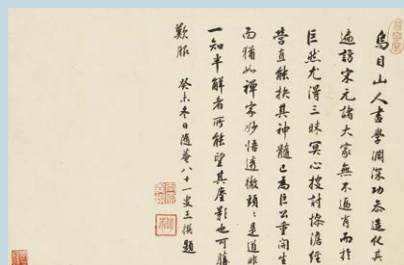 烏目山人畫學淵深功參造化其
遍訪宋元諸大家無不逼肖而於
巨然尤得三昧冥心搜討慘澹經
營直能抉其神髓已為巨公重開生
面猶如禪家妙悟透徹頭頭是道非
一知半解者所能望其塵影也可勝
歎服 癸未冬日隨菴八十一叟王撰題